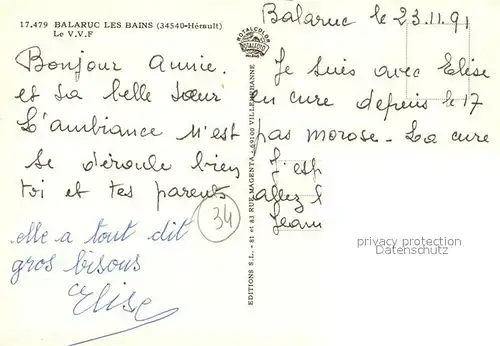 17.479 BALARUC LES BAINS (34540-Hérault)
Le V.V.F
Balaruc le 23.11.91
Bonjour Annie. Je suis avec Elise
et sa belle sœur en cure depuis le 17
L'ambiance n'est pas morose - La cure
se déroule bien J'esp
toi et tes parents allez b
Jeann
34
elle a tout dit
gros bisous
Elise
ROYALCOLOR
EDITIONS S.L. - 81 et 83 RUE MAGENTA - 69100 VILLEURBANNE
privacy protection
Datenschutz